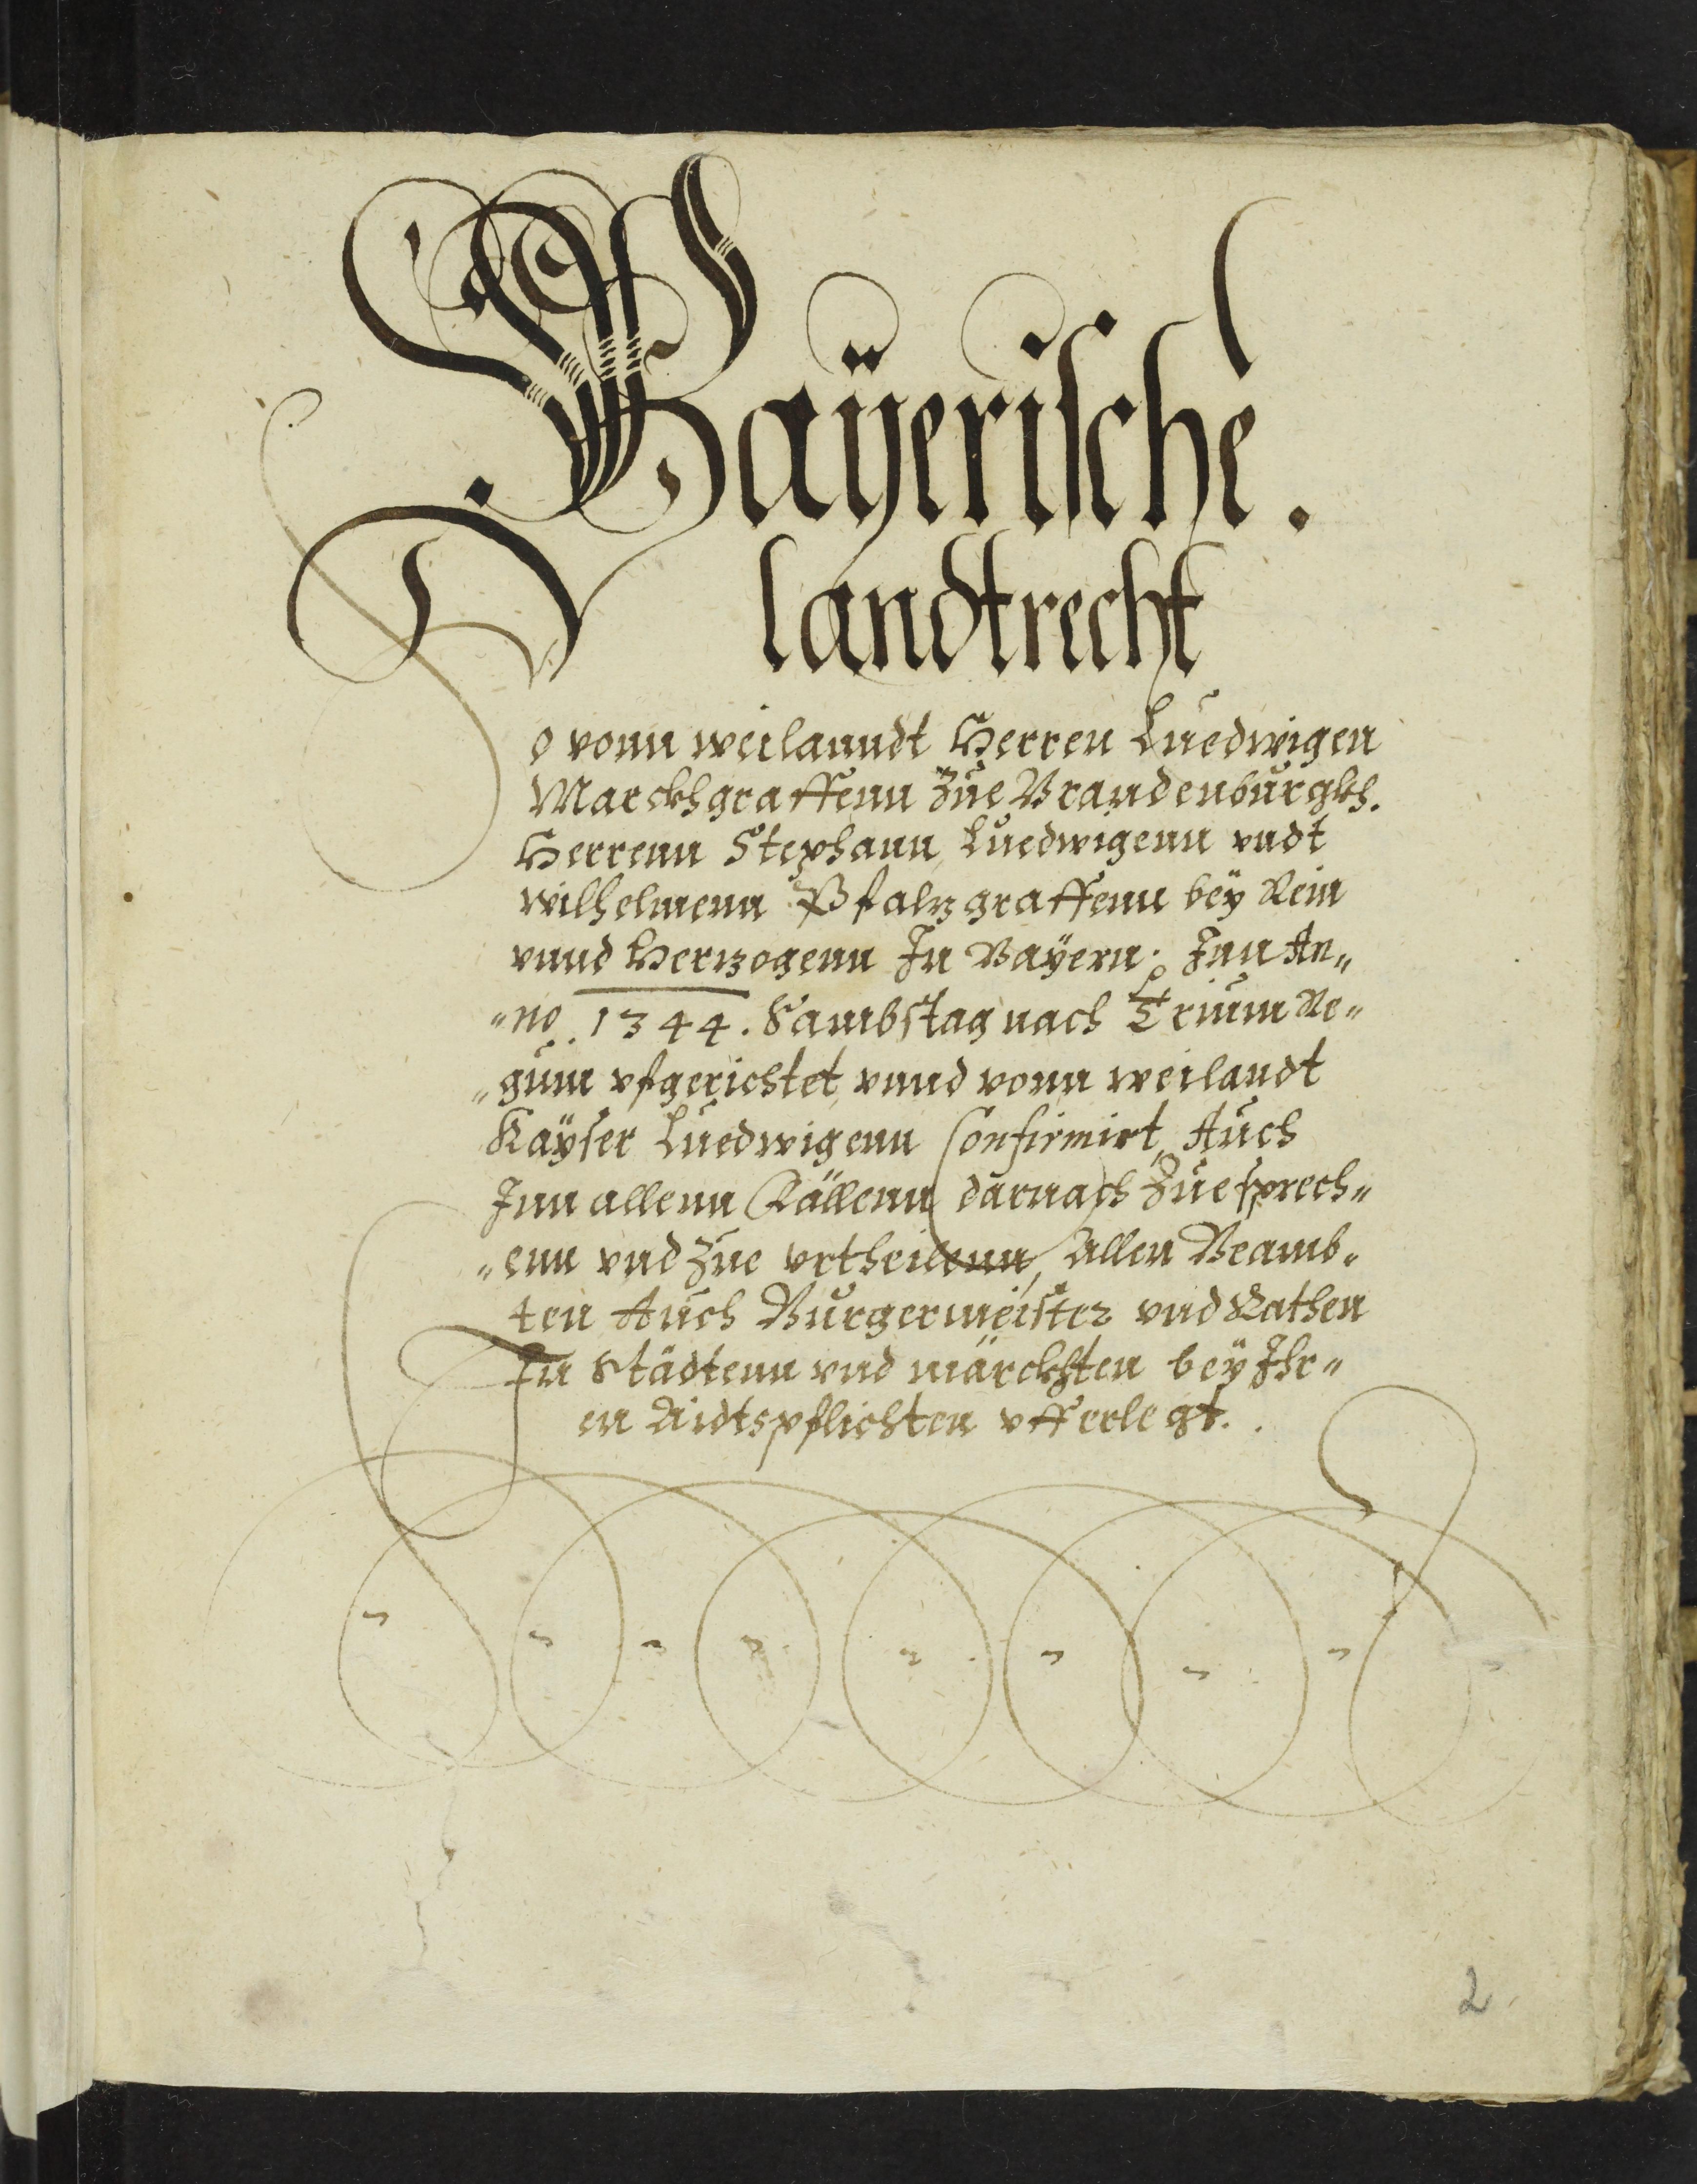 Baÿerische.
landtrecht
So vonn weilanndt Herren Luedwigen
Marckhgraffenn Zue Brandenburgkh.
Herrenn Stephann, Luedwigenn vndt
wilhelmenn Pfalzgraffenn beÿ Rein
vnnd Hertzogenn In Baÿern. Inn An„
„no 1344. Sambstag nach Trium Re„
„gum vfgerichtet, vnnd vonn weilandt
Kaÿser Luedwigenn Confirmirt, Auch
Inn allenn Fällenn darnach Zue sprech„
„enn vnd Zue vrtheilenn, Allen Beamb„
ten Auch Burgermeister vnd Rathen
In Städtenn vnd märckhten beÿ Ihr„
en Aidtspflichten vfferlegt.
2